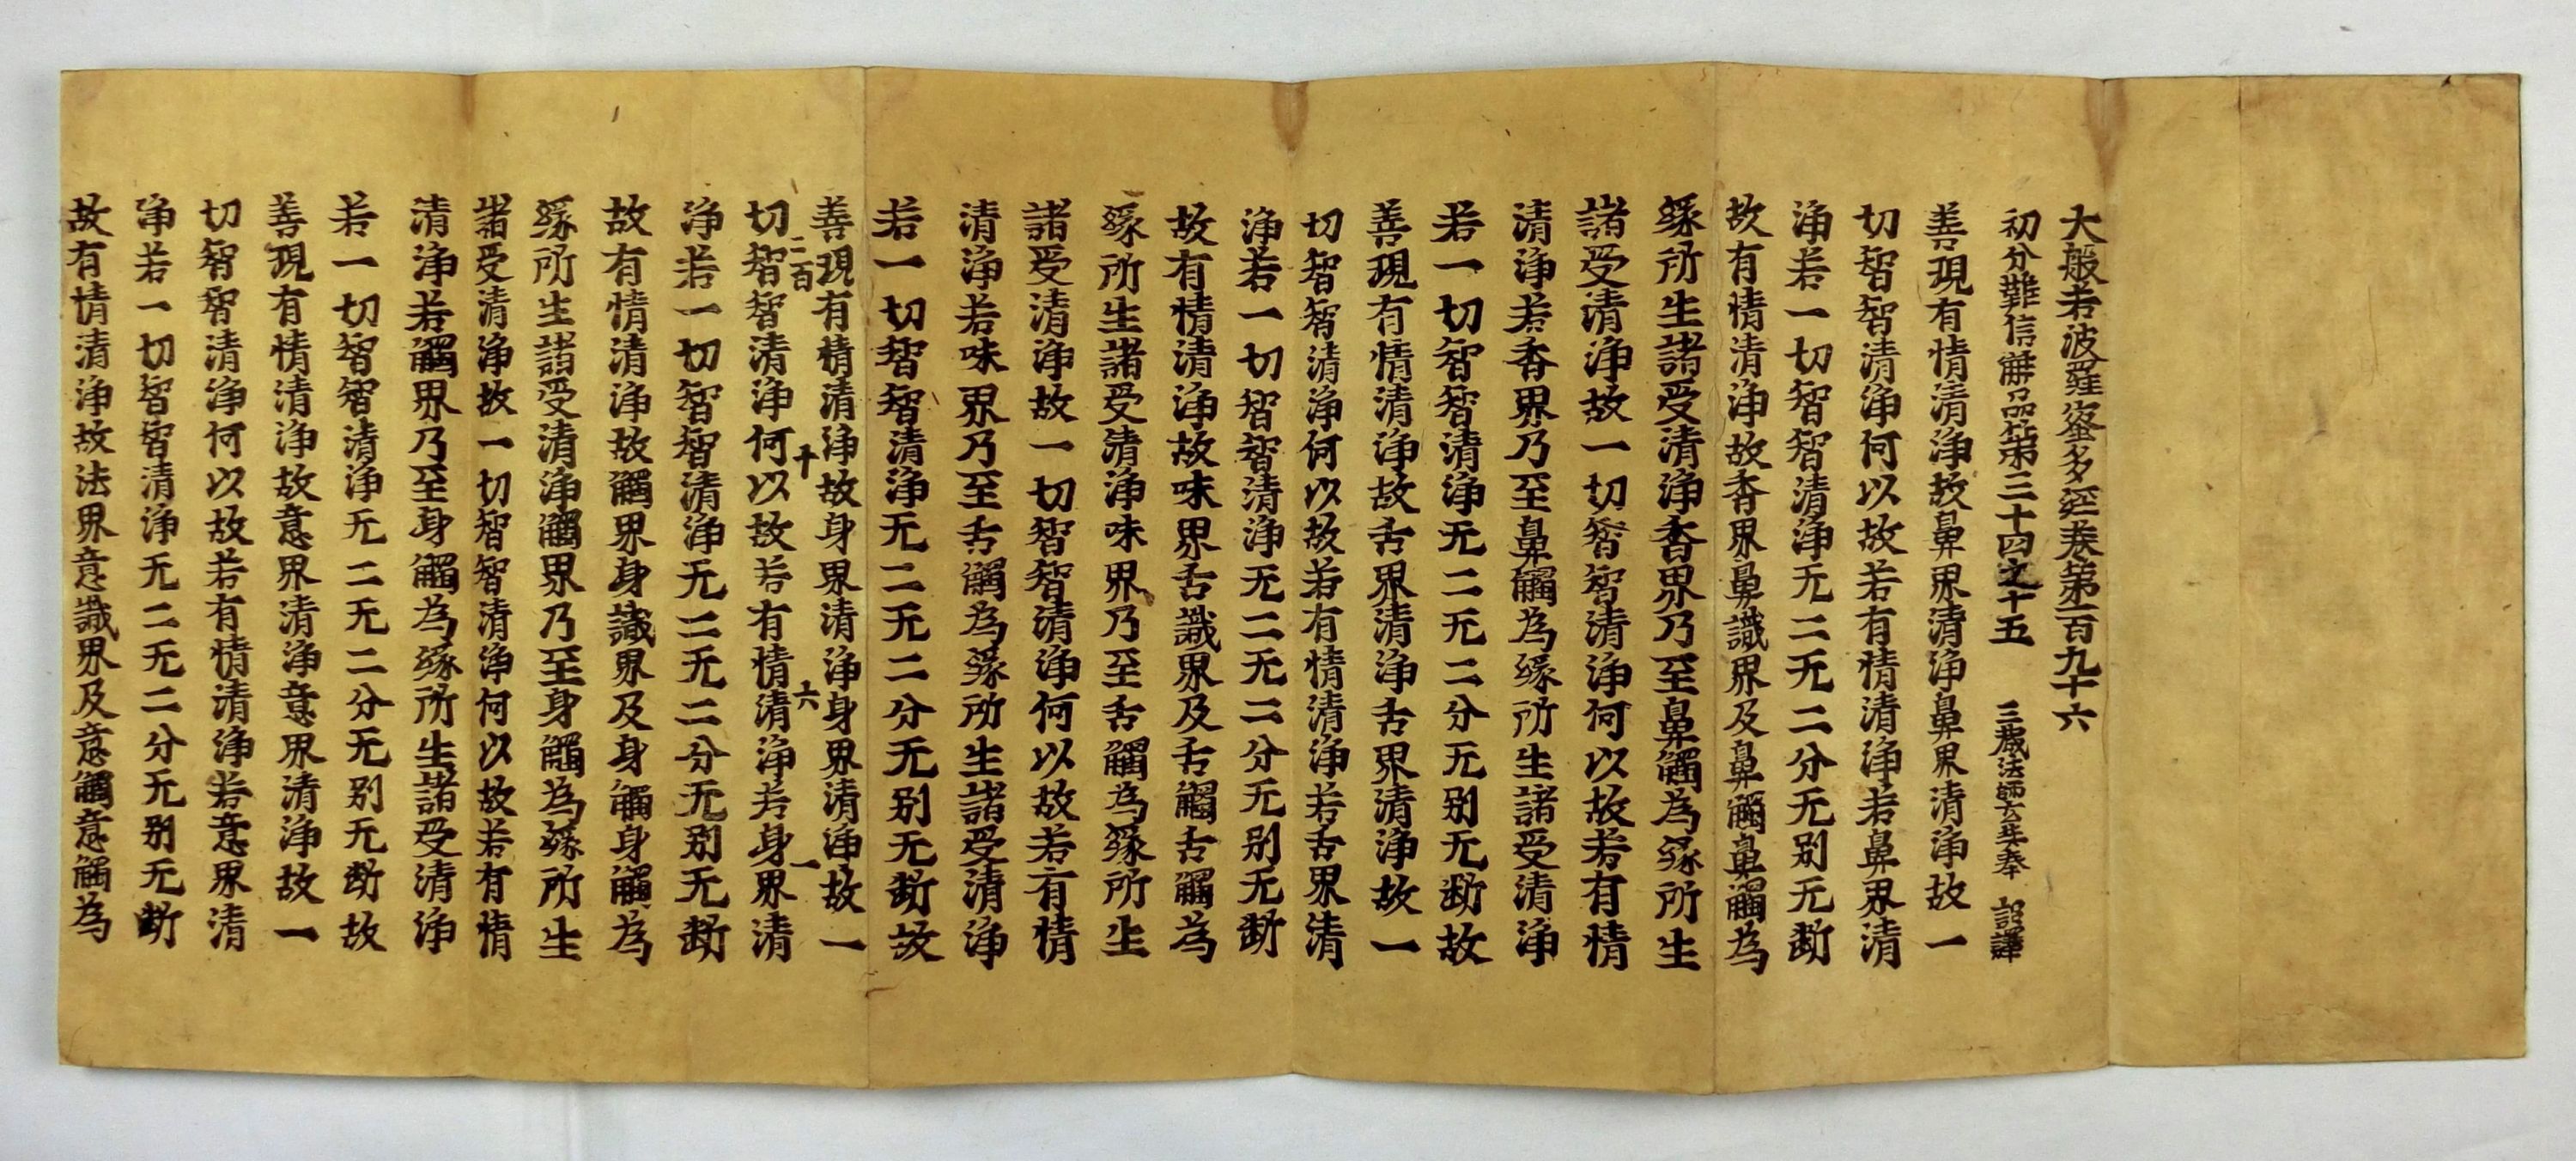 大般若波羅蜜多経巻第一百九十六
初分難信解品第三十四之十五 三藏法師玄奘奉 詔譯
善現有情清浄故鼻界清浄鼻界清浄故一
切智智清浄何以故若有情清浄若鼻界清
浄若一切智智清浄无二无二分无别无断
故有情清浄故香界鼻識界及鼻觸鼻觸為
縁所生諸受清浄香界乃至鼻觸為縁所生
諸受清浄故一切智智清浄何以故若有情
清浄若香界乃至鼻觸為縁所生諸受清浄
若一切智智清浄无二无二分无别无断故
善現有情清浄故舌界清浄舌界清浄故一
切智智清浄何以故若有情清浄若舌界清
浄若一切智智清浄无二无二分无别无断
故有情清浄故味界舌識界及舌觸舌觸為
縁所生諸受清浄味界乃至舌觸為縁所生
諸受清浄故一切智智清浄何以故若有情
清浄若味界乃至舌觸為縁所生諸受清浄
若一切智智清浄无二无二分无别无断故
善現有情清浄故身界清浄身界清浄故一
二百 十 六 一
切智智清浄何以故若有情清浄若身界清
浄若一切智智清浄无二无二分无别无断
故有情清浄故觸界身識界及身觸身觸為
縁所生諸受清浄觸界乃至身觸為縁所生
諸受清浄故一切智智清浄何以故若有情
清浄若觸界乃至身觸為縁所生諸受清浄
若一切智智清浄无二无二分无别无断故
善現有情清浄故意界清浄意界清浄故一
切智智清浄何以故若有情清浄若意界清
浄若一切智智清浄无二无二分无别无断
故有情清浄故法界意識界及意觸意觸為